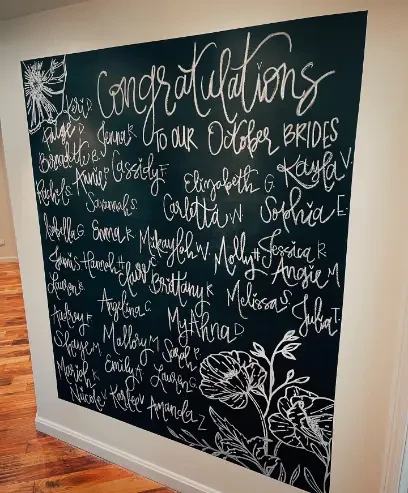 Congratulations
TO OUR October BRIDES
Keri D.
Paige P. Jenna R.
Bernadette B. Kayla V.
Rachel S. Annie P. Cassidy F. Elizabeth G.
Savannah S. Carlotta W. Sophia E.
Isabella G. Emma R. Mykaylah W. Molly H. Jessica R.
Jami S. Hannah H. Angie M.
Lauren B. Brittany K. Melissa S.
Angelina C. Julia T.
Audrey F. MyAnna D.
Shaye M. Mallory M. Sarah P.
Mariah K. Emily A. Lauren G.
Nicole V. Kaylee K. Amanda Z.